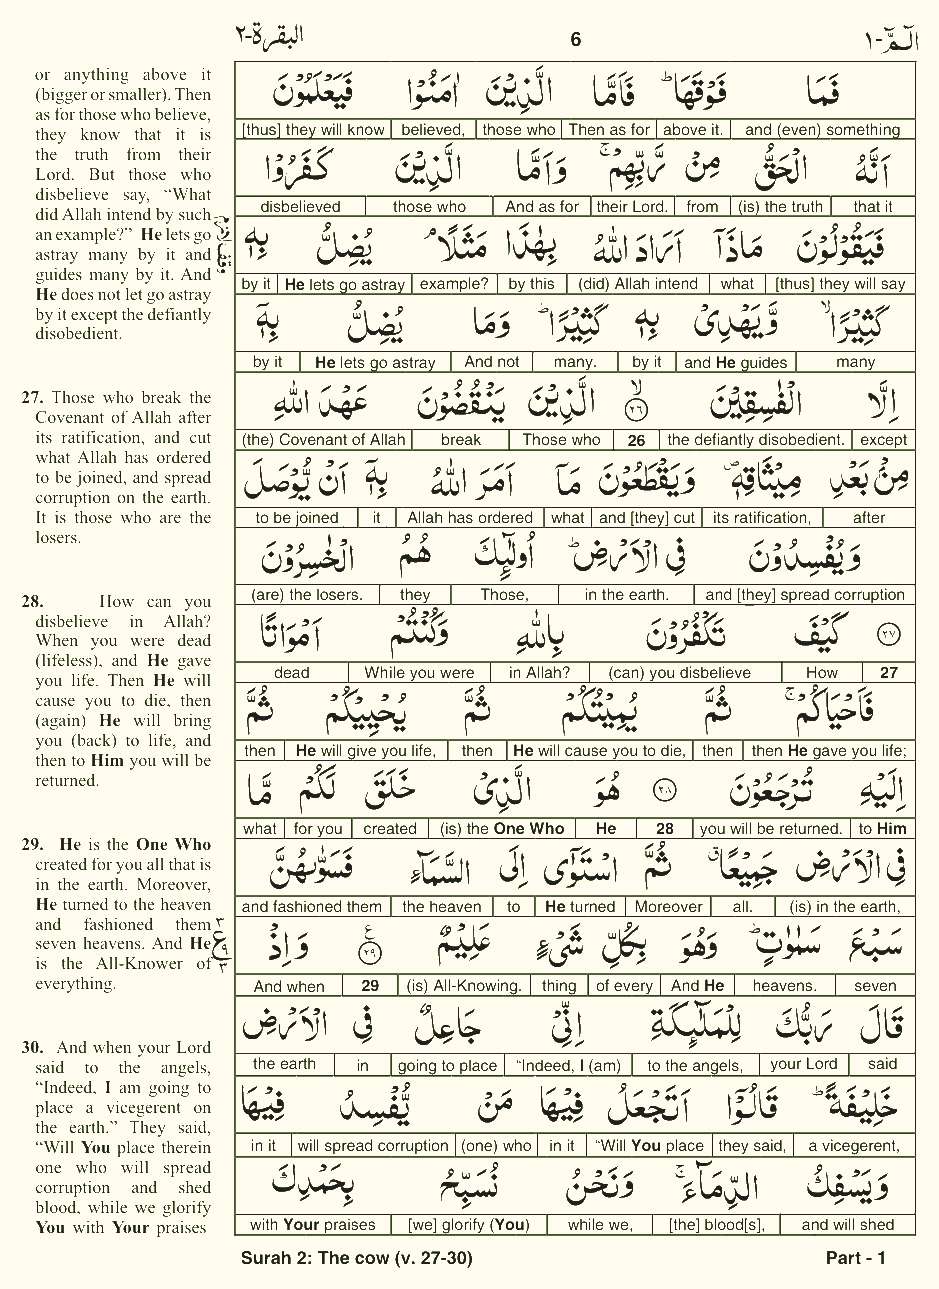 البقرة-٢ 6 الٓمّٓ-١
or anything above it
(bigger or smaller). Then
as for those who believe,
they know that it is
the truth from their
Lord. But those who
disbelieve say, “What
did Allah intend by such
an example?” He lets go
astray many by it and
guides many by it. And
He does not let go astray
by it except the defiantly
disobedient.
27. Those who break the
Covenant of Allah after
its ratification, and cut
what Allah has ordered
to be joined, and spread
corruption on the earth.
It is those who are the
losers.
28. How can you
disbelieve in Allah?
When you were dead
(lifeless), and He gave
you life. Then He will
cause you to die, then
(again) He will bring
you (back) to life, and
then to Him you will be
returned.
29. He is the One Who
created for you all that is
in the earth. Moreover,
He turned to the heaven
and fashioned them
seven heavens. And He
is the All-Knower of
everything.
30. And when your Lord
said to the angels,
“Indeed, I am going to
place a vicegerent on
the earth.” They said,
“Will You place therein
one who will spread
corruption and shed
blood, while we glorify
You with Your praises
فَمَا فَوْقَهَا ؕ فَاَمَّا الَّذِيْنَ اٰمَنُوْا فَيَعْلَمُوْنَ
[thus] they will know believed, those who Then as for above it. and (even) something
اَنَّهُ الْحَقُّ مِنْ رَّبِّهِمْ ۚ وَاَمَّا الَّذِيْنَ كَفَرُوْا
disbelieved those who And as for their Lord. from (is) the truth that it
فَيَقُوْلُوْنَ مَاذَاۤ اَرَادَ اللّٰهُ بِهٰذَا مَثَلًا ۘ يُضِلُّ بِهٖ
by it He lets go astray example? by this (did) Allah intend what [thus] they will say
كَثِيْرًا ۙ وَّيَهْدِىْ بِهٖ كَثِيْرًا ؕ وَمَا يُضِلُّ بِهٖۤ
by it He lets go astray And not many. by it and He guides many
اِلَّا الْفٰسِقِيْنَ ۙ ٢٦ الَّذِيْنَ يَنْقُضُوْنَ عَهْدَ اللّٰهِ
(the) Covenant of Allah break Those who 26 the defiantly disobedient. except
مِنْۢ بَعْدِ مِيْثَاقِهٖ ۪ وَيَقْطَعُوْنَ مَاۤ اَمَرَ اللّٰهُ بِهٖۤ اَنْ يُّوْصَلَ
to be joined it Allah has ordered what and [they] cut its ratification, after
وَيُفْسِدُوْنَ فِى الْاَرْضِ ؕ اُولٰٓئِكَ هُمُ الْخٰسِرُوْنَ
(are) the losers. they Those, in the earth. and [they] spread corruption
٢٧ كَيْفَ تَكْفُرُوْنَ بِاللّٰهِ وَكُنْتُمْ اَمْوَاتًا
dead While you were in Allah? (can) you disbelieve How 27
فَاَحْيَاكُمْ ۚ ثُمَّ يُمِيْتُكُمْ ثُمَّ يُحْيِيْكُمْ ثُمَّ
then He will give you life, then He will cause you to die, then then He gave you life;
اِلَيْهِ تُرْجَعُوْنَ ٢٨ هُوَ الَّذِىْ خَلَقَ لَكُمْ مَّا
what for you created (is) the One Who He 28 you will be returned. to Him
فِى الْاَرْضِ جَمِيْعًا ۗ ثُمَّ اسْتَوٰۤى اِلَى السَّمَآءِ فَسَوّٰىهُنَّ
and fashioned them the heaven to He turned Moreover all. (is) in the earth,
سَبْعَ سَمٰوٰتٍ ؕ وَهُوَ بِكُلِّ شَىْءٍ عَلِيْمٌ ٢٩ وَاِذْ
And when 29 (is) All-Knowing. thing of every And He heavens. seven
قَالَ رَبُّكَ لِلْمَلٰٓئِكَةِ اِنِّىْ جَاعِلٌ فِى الْاَرْضِ
the earth in going to place “Indeed, I (am) to the angels, your Lord said
خَلِيْفَةً ؕ قَالُوْۤا اَتَجْعَلُ فِيْهَا مَنْ يُّفْسِدُ فِيْهَا
in it will spread corruption (one) who in it “Will You place they said, a vicegerent,
وَيَسْفِكُ الدِّمَآءَ ۚ وَنَحْنُ نُسَبِّحُ بِحَمْدِكَ
with Your praises [we] glorify (You) while we, [the] blood[s], and will shed
Surah 2: The cow (v. 27-30) Part - 1